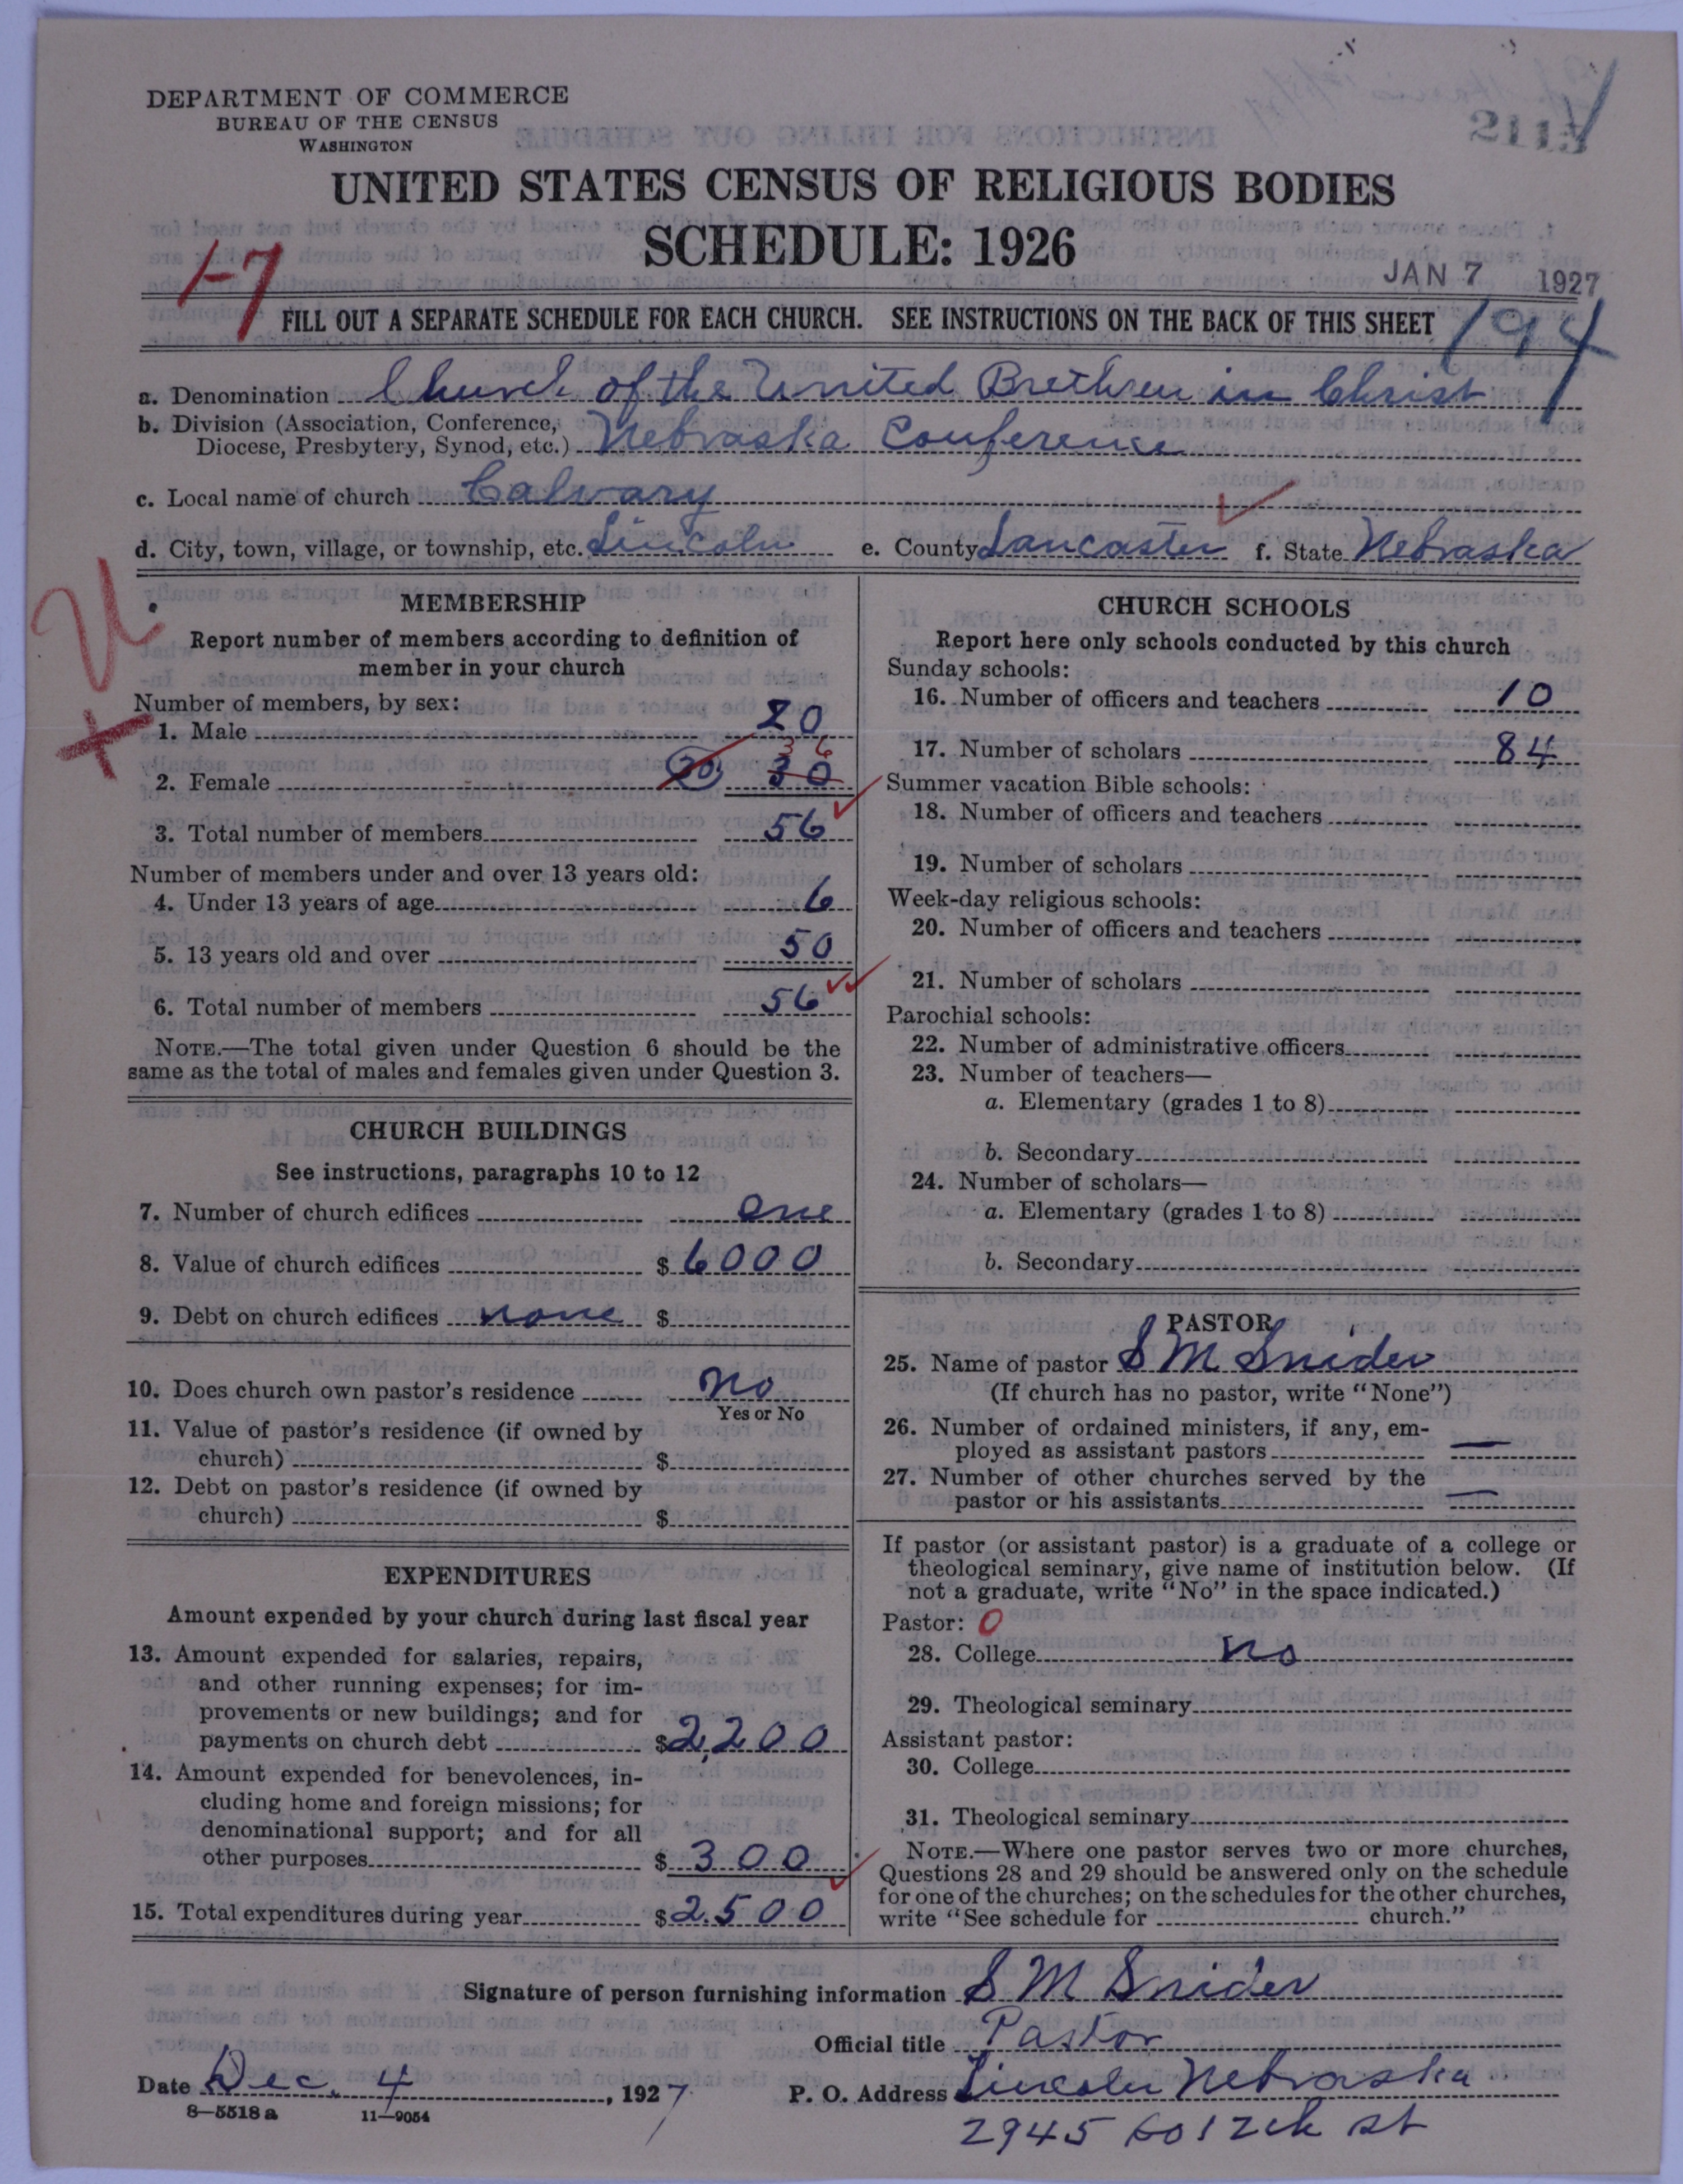 DEPARTMENT OF COMMERCE
BUREAU OF THE CENSUS
WASHINGTON
UNITED STATES CENSUS OF RELIGIOUS BODIES
SCHEDULE: 1926
1-7
JAN 7 1927
FILL OUT A SEPARATE SCHEDULE FOR EACH CHURCH. SEE INSTRUCTIONS ON THE BACK OF THIS SHEET
194
a. Denomination Church of the United Brethren in Christ
b. Division (Association, Conference,
Diocese, Presbytery, Synod, etc.) Nebraska Conference
c. Local name of church Calvary
d. City, town, village, or township, etc. Lincoln e. County Lancaster f. State Nebraska
MEMBERSHIP
Report number of members according to definition of
member in your church
Number of members, by sex:
1. Male 20
36
2. Female 20 30
3. Total number of members 56
Number of members under and over 13 years old:
4. Under 13 years of age 6
5. 13 years old and over 50
6. Total number of members 56
NOTE.—The total given under Question 6 should be the
same as the total of males and females given under Question 3.
CHURCH BUILDINGS
See instructions, paragraphs 10 to 12
7. Number of church edifices one
8. Value of church edifices $ 6000
9. Debt on church edifices none $
10. Does church own pastor's residence no
Yes or No
11. Value of pastor's residence (if owned by
church) $
12. Debt on pastor's residence (if owned by
church) $
EXPENDITURES
Amount expended by your church during last fiscal year
13. Amount expended for salaries, repairs,
and other running expenses; for im-
provements or new buildings; and for
payments on church debt $2,200
14. Amount expended for benevolences, in-
cluding home and foreign missions; for
denominational support; and for all
other purposes $ 300
15. Total expenditures during year $2.500
CHURCH SCHOOLS
Report here only schools conducted by this church
Sunday schools:
16. Number of officers and teachers 10
17. Number of scholars 84
Summer vacation Bible schools:
18. Number of officers and teachers
19. Number of scholars
Week-day religious schools:
20. Number of officers and teachers
21. Number of scholars
Parochial schools:
22. Number of administrative officers
23. Number of teachers—
a. Elementary (grades 1 to 8)
b. Secondary
24. Number of scholars—
a. Elementary (grades 1 to 8)
b. Secondary
PASTOR
25. Name of pastor S M Snider
(If church has no pastor, write "None")
26. Number of ordained ministers, if any, em-
ployed as assistant pastors —
27. Number of other churches served by the
pastor or his assistants —
If pastor (or assistant pastor) is a graduate of a college or
theological seminary, give name of institution below. (If
not a graduate, write "No" in the space indicated.)
Pastor: 0
28. College no
29. Theological seminary
Assistant pastor:
30. College
31. Theological seminary
NOTE.—Where one pastor serves two or more churches,
Questions 28 and 29 should be answered only on the schedule
for one of the churches; on the schedules for the other churches,
write "See schedule for church."
Signature of person furnishing information S M Snider
Official title Pastor
Date Dec. 4, 1927 P. O. Address Lincoln Nebraska
8-5518 a 11-9054
2945 So 12th st